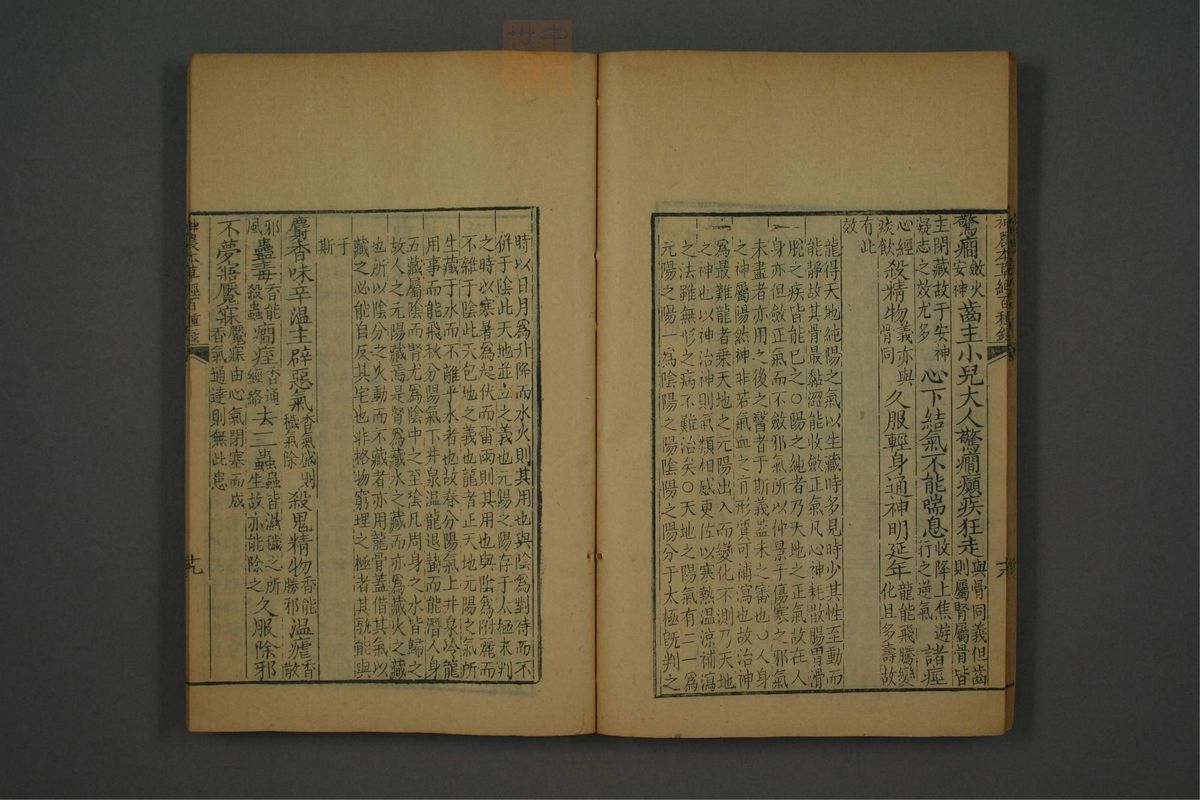 神農本草經百種錄
驚癇斂火安神齒主小兒大人驚癇癲疾狂走與骨同義但齒則屬腎屬骨皆
主閉藏故于安神凝志之效尤多心下結氣不能喘息收降上焦遊行之逆氣諸痙
心經痰飲殺精物義亦與骨同久服輕身通神明延年龍能飛騰變化且多壽故
有此效
龍得天地純陽之氣以生藏時多見時少其性至動而
能靜故其骨最黏澀能收斂正氣凡心神耗散腸胃滑
脫之疾皆能已之〇陽之純者乃天地之正氣故在人
身亦但斂正氣而不斂邪氣所以仲景于傷寒之邪氣
未盡者亦用之後之醫者于斯義蓋未之審也〇人身
之神屬陽然神非若氣血之有形質可補瀉也故治神
爲最難龍者乘天地之元陽出入而變化不測乃天地
之神也以神治神則氣類相感更佐以寒熱溫涼補瀉
之法雖無形之病不難治矣〇天地之陽氣有二一爲
元陽之陽一爲陰陽之陽陰陽之陽分于太極旣判之
時以日月爲升降而水火則其用也與陰爲對待而不
併于陰此天地並立之義也元陽之陽存于太極未判
之時以寒暑爲起伏而雷雨則其用也與陰爲附麗而
不雜于陰此天包地之義也龍者正天地元陽之氣所
生藏于水而不離乎水者也故春分陽氣上井泉冷龍
用事而能飛秋分陽氣下井泉溫龍退蟄而能潛人身
五藏屬陰而腎尤爲陰中之至陰凡周身之水皆歸之
故人之元陽藏焉是腎爲藏水之藏而亦爲藏火之藏
也所以陰分之火動而不藏者亦用龍骨蓋借其氣以
藏之必能自反其宅也非格物窮理之極者其孰能與
于斯
麝香味辛溫主辟惡氣香氣盛則穢氣除殺鬼精物香能勝邪溫瘧香散
邪風蠱毒香能殺蟲癇痓香通經絡去三蟲蟲皆濕穢之所生故亦能除之久服除邪
不夢寤魘寐魘寐由心氣閉塞而成香氣通達則無此患
神農本草經百種錄